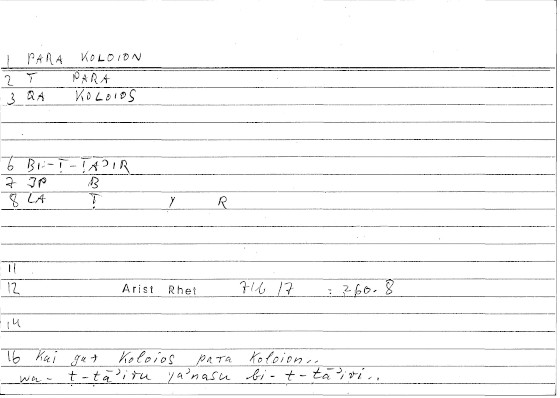 1 PARA KOLOION
2 T PARA
3 QA KOLOIOS
6 BI-Ṭ-ṬAʾIR
7 JP B
8 LA Ṭ Y R
11
12 Arist Rhet 71b 17 : 260.8
14
16 Kai gar Koloios para Koloion..
wa-ṭ-ṭāʾiru yaʾnasu bi-ṭ-ṭāʾiri..